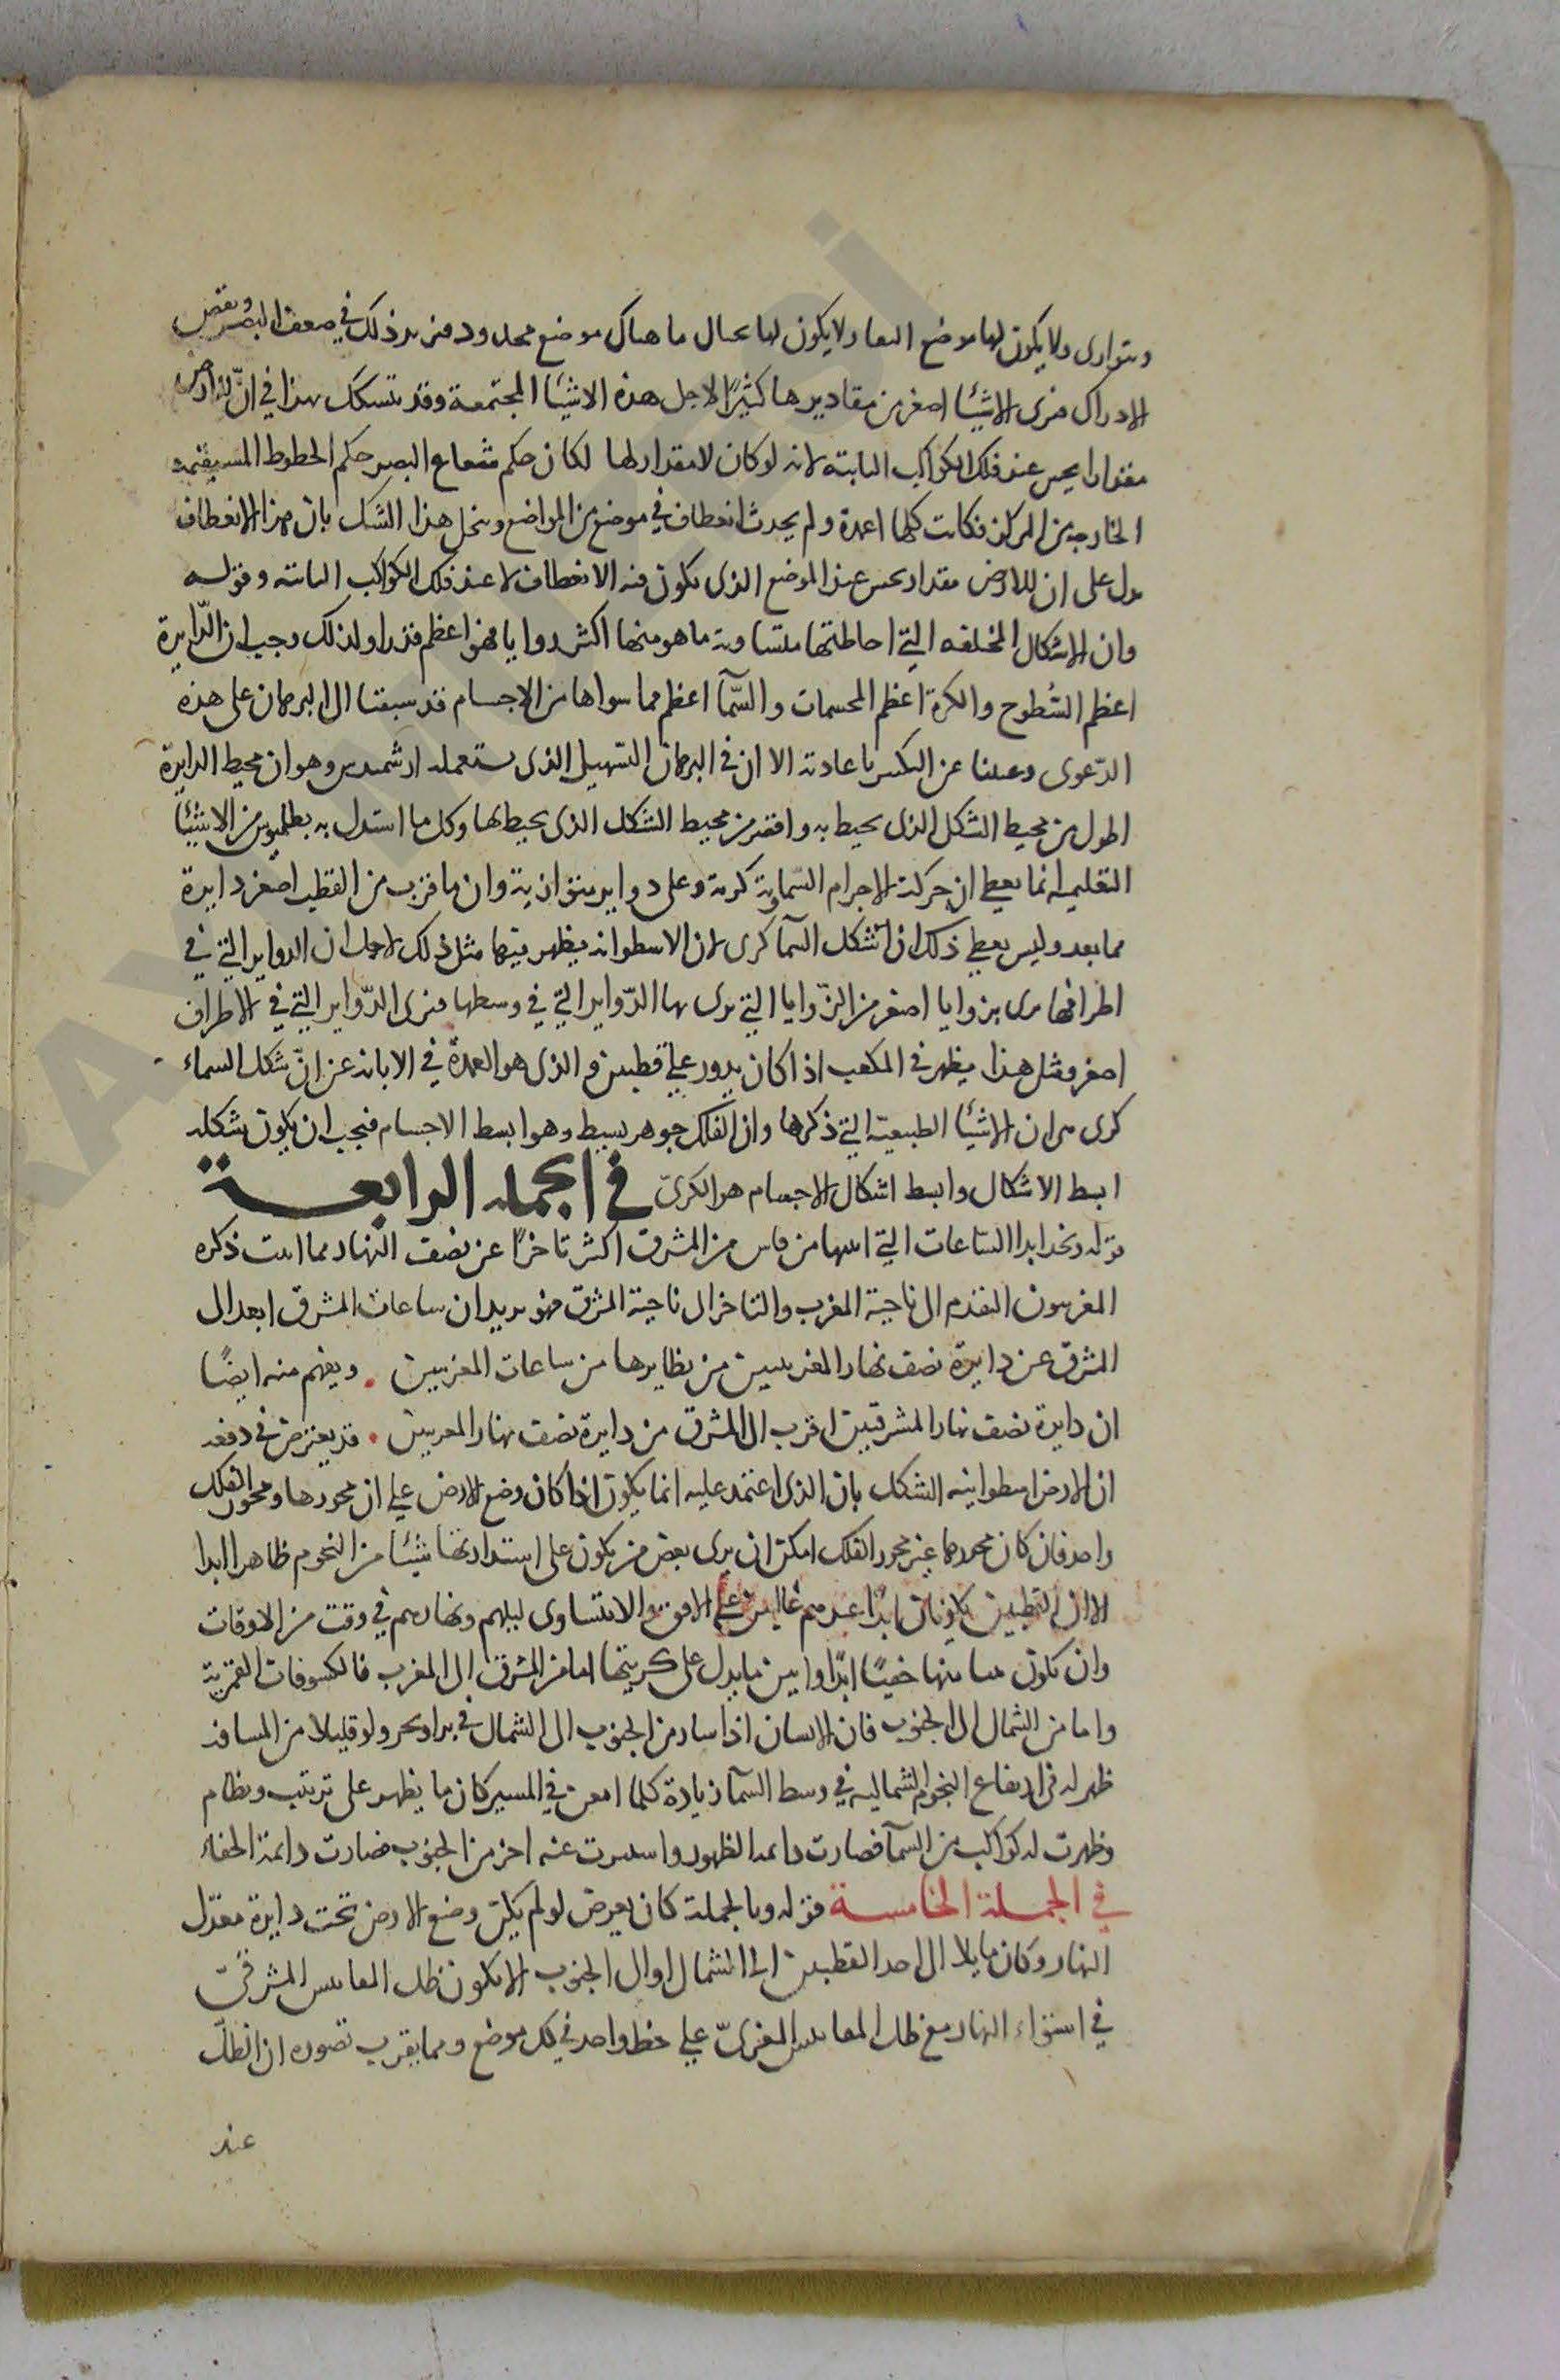 ويتوارى ولا يكون لها موضع البعد ولا يكون لها بحال ما هناك موضع محدود فيزيد ذلك في ضعف البصر ونقص
الادراك فنرى الاشيا اصغر من مقاديرها كثيرًا لاجل هذه الاشيا المجتمعة وقد يتشكك بهذا في انّ للارض
مقدارا يحس عند فلك الكواكب الثابتة لانه لو كان لا مقدار لها لكان حكم شعاع البصر حكم الخطوط المستقيمة
الخارجة من المركز فكانت كلها اعمدة ولم يحدث انعطاف في موضع من المواضع وينحل هذا الشك بان هذا الانعطاف
يدل على ان للارض مقدار يحس عند الموضع الذي يكون فيه الانعطاف لا عند فلك الكواكب الثابتة وقوله
وان الاشكال المختلفة التي احاطتها متساوية ما هو منها اكثر زوايا فهو اعظم قدرا ولذلك وجب ان الدّايرة
اعظم السُطوح والكرة اعظم المجسمات والسّمآ اعظم مما سواها من الاجسام قد سبقنا الى البرهان على هذه
الدّعوى وعدلنا عن التكثير باعادته الا ان في البرهان التسهيل الذي يستعمله ارشميدس وهو ان محيط الدايرة
اطول من محيط الشكل الذي يحيط به واقصر من محيط الشكل الذي يحيط بها وكل ما استدل به بطلميوس من الاشيا
التعليمية انما يعطي ان حركة الاجرام السّماوية كرية وعلى دواير متوازية وان ما قرب من القطب اصغر دايرة
مما بعد وليس يعطي ذلك ان شكل السمآ كرى لان الاسطوانة يظهر فيها مثل ذلك لاجل ان الدواير التي في
اطرافها ترى بزوايا اصغر من الزّوايا التي يرى بها الدّواير التي في وسطها فنرى الدّواير التي في الاطراف
اصغر ومثل هذا يظهر في المكعب اذا كان يدور على قطبين والذي هو العمدة في الابانة عن انّ شكل السماء
كرى من ان الاشيا الطبيعيّة التي ذكرها وان الفلك جوهر بسيط وهو ابسط الاجسام فيجب ان يكون شكله
ابسط الاشكال وابسط اشكال الاجسام هو الكريّ في الجملة الرابعة
قوله ونجد ابدا الساعات التي اثبتها من قاس من المشرق اكثر تاخرًا عن نصف النهار مما اثبت ذكره
المغربيون التقدم الى ناحية المغرب والتاخر الى ناحية المشرق فهو يريد ان ساعات المشرق ابعد الى
المشرق عن دايرة نصف نهار المغربيين من نظايرها من ساعات المغربيين . ويفهم منه ايضًا
ان دايرة نصف نهار المشرقيين اقرب الى المشرق من دايرة نصف نهار المغربيين . قد يعترض في دفعه
ان الارض اسطوانية الشكل بان الذي اعتمد عليه انما يكون اذا كان وضع الارض على ان محورها ومحور الفلك
واحد فان كان محورها غير محور الفلك امكن ان يرى بعض من يكون على استدارتها شيئًا من النجوم ظاهرا ابدا
الا ان القطبين يكونان ابدًا عندهم على الافق والا يتساوى ليلهم ونهارهم في وقت من الاوقات
وان يكون منها خفيًا ابدًا وابين ما يدل على كريتها اما من المشرق الى المغرب فالكسوفات القمرية
واما من الشمال الى الجنوب فان الانسان اذا سار من الجنوب الى الشمال في بر او بحر ولو قليلا من المسافة
ظهر له في ارتفاع النجوم الشمالية في وسط السمآ زيادة كلما امعن في المسير كان ما يظهر على ترتيب ونظام
وظهرت له كواكب من السمآ فصارت دايمة الظهور واستترت عنه اخر من الجنوب فصارت دايمة الخفاء
في الجملة الخامسة قوله وبالجملة كان يعرض لو لم يكن وضع الارض تحت دايرة معدّل
النهار وكان مايلا الى احد القطبين الى الشمال او الى الجنوب الا يكون ظل المقايس المشرقيّ
في استواء النهار مع ظل المقايس المغربيّ على خط واحد في كل موضع ومما يقرب تصوره ان الظلّ
عند